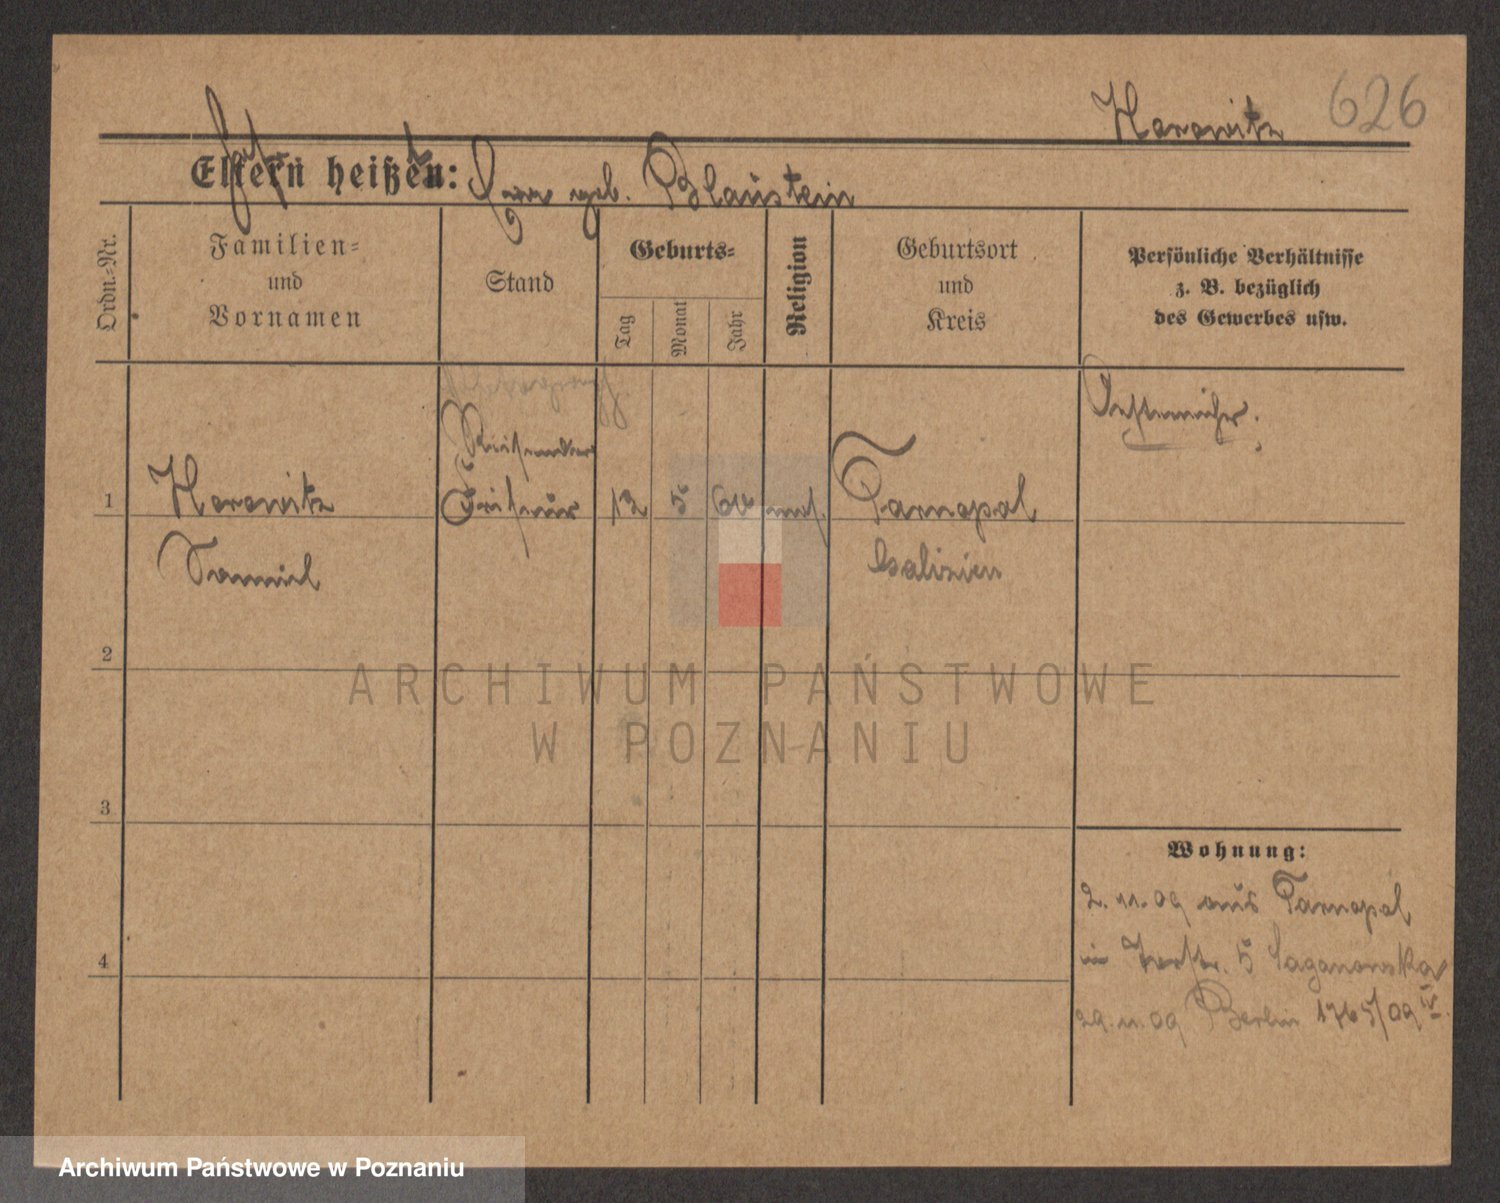 Horowitz 626
Eltern heißen: geb. Blaustein
Ordn.-Nr.
Familien-
und
Vornamen
Stand
Geburts-
Tag
Monat
Jahr
Religion
Geburtsort
und
Kreis
Persönliche Verhältnisse
z. B. bezüglich
des Gewerbes usw.
Oesterreicher.
Reisender
1 Horowitz Friseur 12 5 mos. Tarnopol
Samuel Galizien
2
ARCHIWUM PAŃSTWOWE
W POZNANIU
3
Wohnung:
2.11.09 aus Tarnopol
4
in 5 Laganowska
29.11.09 Berlin 1765/09 IV.
Archiwum Państwowe w Poznaniu